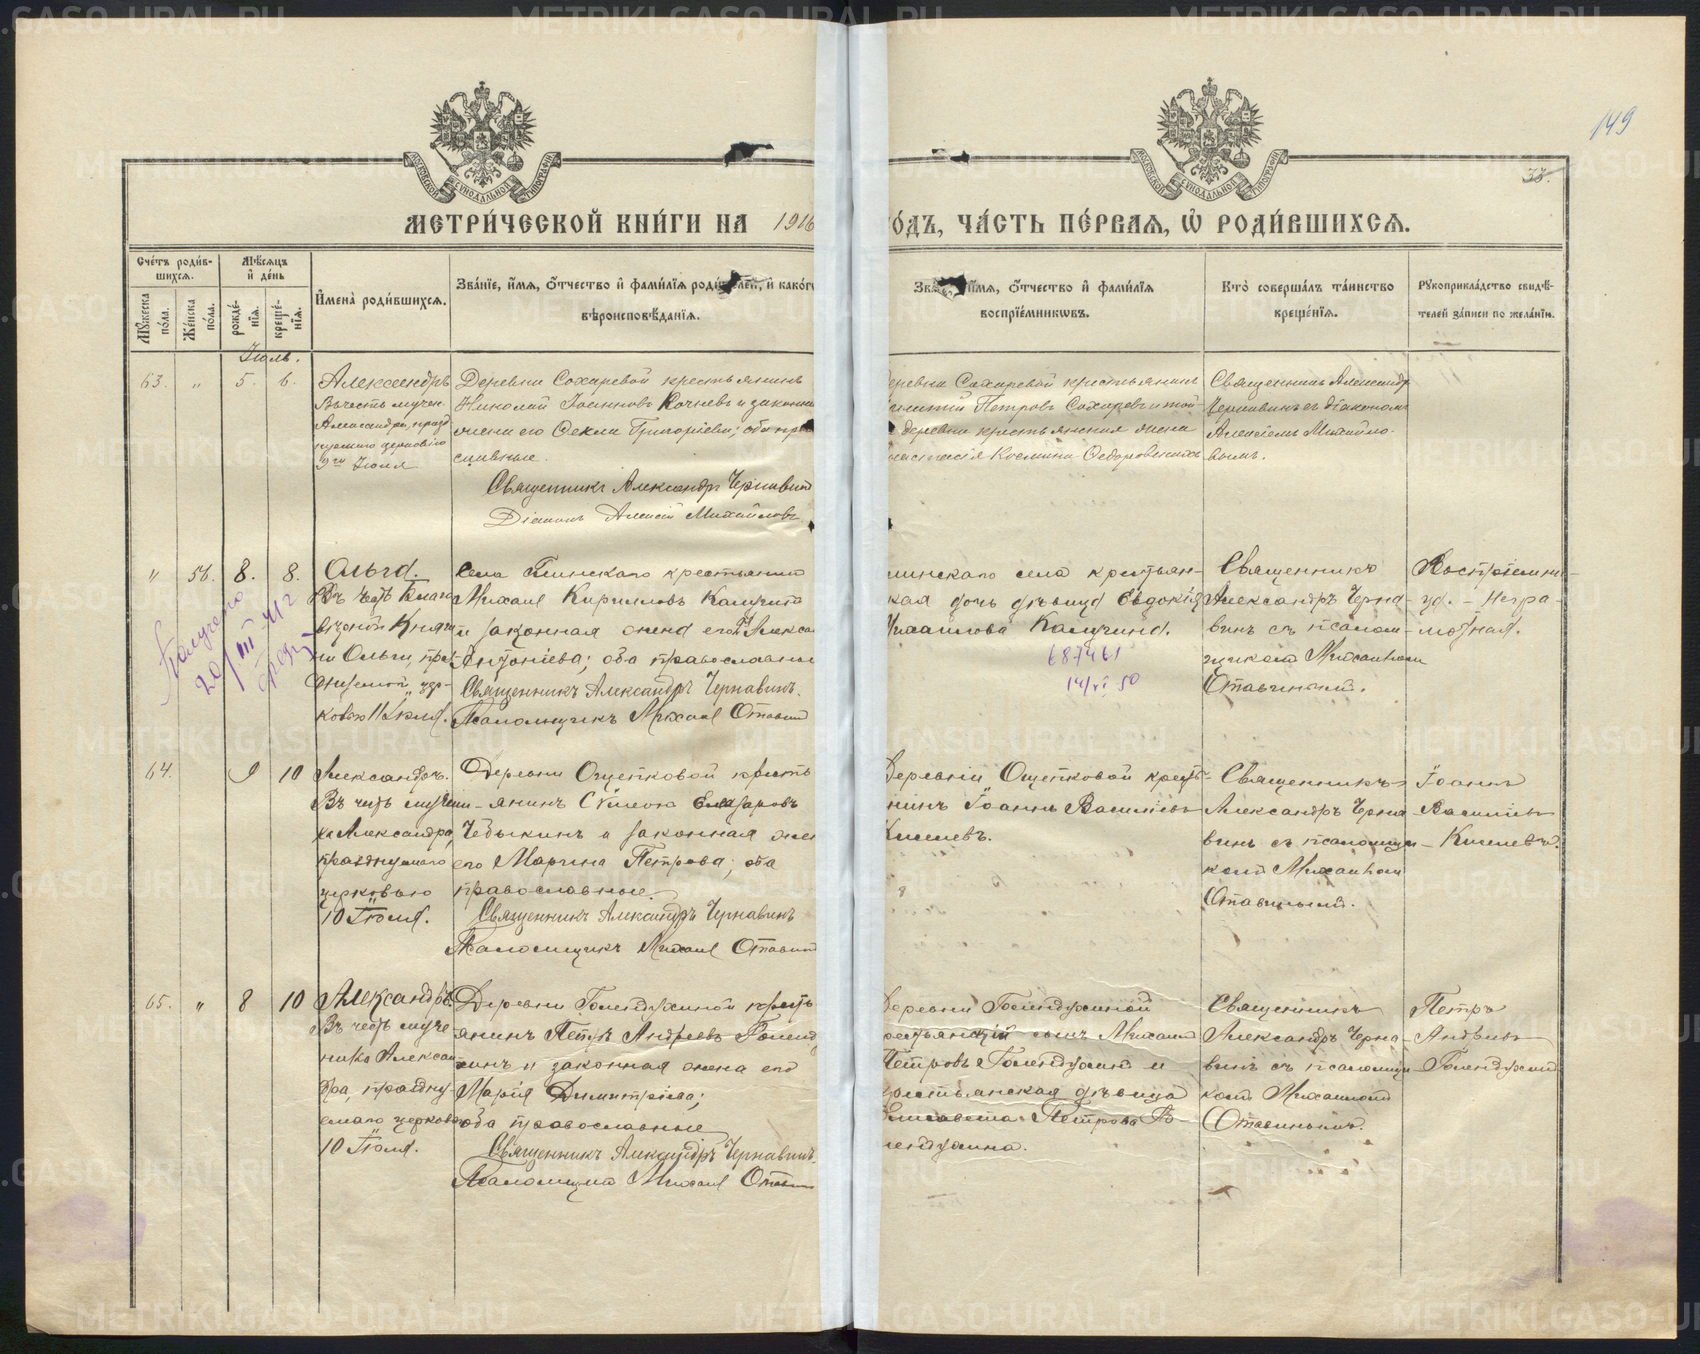 149
33.
МОСКОВСКОЙ СѴНОДАЛЬНОЙ ТИПОГРАФІИ
МОСКОВСКОЙ СѴНОДАЛЬНОЙ ТИПОГРАФІИ
МЕТРИ́ЧЕСКОЙ КНИ́ГИ НА 1916
О́ДЪ, ЧА́СТЬ ПЕ́РВАѦ, Ѡ҆ РОДИ́ВШИХСѦ.
Сче́тъ роди́в-
шихсѧ.
Мѣ́сѧцъ
и҆ де́нь
Мꙋ́жеска
по́ла.
Же́нска
по́ла.
рожде́-
нїѧ.
креще́-
нїѧ.
И҆мена̀ роди́вшихсѧ.
Зва́нїе, и҆́мѧ, ѻ҆́тчество и҆ фами́лїѧ роди́телей, и҆ како́г
вѣроисповѣ́данїѧ.
Зва и҆́мѧ, ѻ҆́тчество и҆ фами́лїѧ
воспрїе́мникѡвъ.
Кто̀ соверша́лъ та́инство
креще́нїѧ.
Рꙋкоприкла́дство свидѣ́-
телей за́писи по жела́нїю.
Іюль.
63. " 5. 6.
Александръ
Въ честь мучен.
Александра, празд
9го Іюля
Деревни Сохаревой крестьянинъ
Николай Іоанновъ Кочневъ и законна
жена его Ѳекла Григоріева; оба пра
славные.
Священникъ Александръ Чернавинъ
Діаконъ Алексій Михайловъ
деревни Сохаревой крестьянинъ
Петровъ Сохаревъ и той-
деревни крестьянская жена
Космина Ѳедоровскихъ
Священникъ Александръ
Чернавинъ съ діакономъ
Алексіемъ Михайло-
вымъ.
" 56. 8. 8.
Ольга.
Въ честь благо
вѣрной Княги
ни Ольги, праз-
днуемой цер-
ковью 11 Іюля.
Села Глинскаго крестьянинъ
Михаилъ Кирилловъ Калугинъ
и законная жена его Алекса
Антоніева; оба православные
Священникъ Александръ Чернавинъ.
Псаломщикъ Михаилъ Отавинъ
линскаго села крестьян-
кая дочь дѣвица Евдокія
Михаилова Калугина.
687461
14/VI 50
Священникъ
Александръ Черна-
винъ съ псалом-
щикомъ Михаиломъ
Отавинымъ.
Воспріемни-
ца - негра-
мотная.
Получено
20/III-41г
64. 9 10
Александръ.
Въ честь мучени-
ка Александра,
празднуемаго
церковью
10 Іюля.
Деревни Ощепковой кресть
янинъ Сѵмеонъ Елеазаровъ
Чебыкинъ и законная жен
его Марина Петрова; оба
православные.
Священникъ Александръ Чернавинъ
Псаломщикъ Михаилъ Отавинъ
Деревни Ощепковой кресть-
нинъ Іоаннъ Васильевъ
Киселевъ.
Священникъ
Александръ Черна
винъ съ псаломщи-
комъ Михаиломъ
Отавинымъ.
Іоаннъ
Васильевъ
Киселевъ.
65. " 8 10
Александръ.
Въ честь муче-
ника Алексан
дра, праздну-
емаго церковью
10 Іюля.
Деревни Голендухиной кресть
янинъ Петръ Андреевъ Голенд
хинъ и законная жена его
Марія Димитріева;
оба православные
Священникъ Александръ Чернавинъ.
Псаломщикъ Михаилъ Отавин
Деревни Голендухиной
рестьянскій сынъ Михаилъ
Петровъ Голендухинъ и
крестьянская дѣвица
Елисавета Петрова Го-
лендухина.
Священникъ
Александръ Черна-
винъ съ псаломщи-
комъ Михаиломъ
Отавинымъ.
Петръ
Андреевъ
Голендухинъ
METRIKI.GASO-URAL.RU